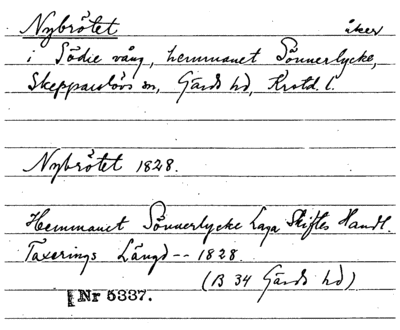 Nybrötet åker
i Södre vång, hemmanet Sönnerlycke,
Skepparslövs sn, Gärds hd, Krstd. l.
Nybrötet 1828.
Hemmanet Sönnerlycke Laga Skiftes Handl.
Taxerings Längd -- 1828.
(B 34 Gärds hd)
Nr 5337.